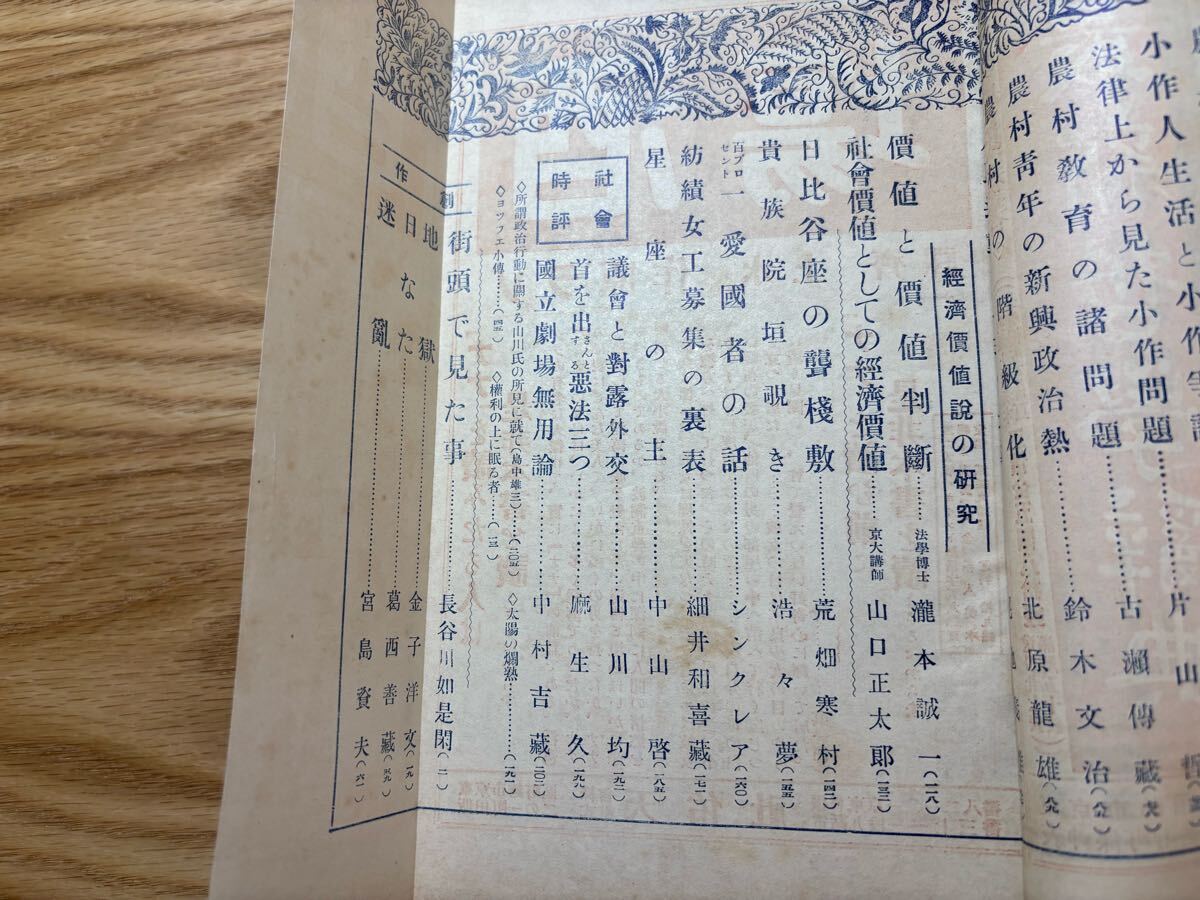 小作人生活と小作爭議
片山
法律上から見た小作問題……古瀨傳藏
農村教育の諸問題………鈴木文治(八二)
農村靑年の新興政治熱………北原龍雄(八九)
經濟價値說の硏究
價値と價値判斷……法學博士 瀧本誠一(一一八)
社會價値としての經濟價値……京大講師 山口正太郞(一三二)
日比谷座の聾棧敷………荒畑寒村(一四二)
貴族院垣覗き………浩々夢(一五五)
百プロセント愛國者の話………シンクレア(一六〇)
紡績女工募集の裏表………細井和喜藏(一七一)
星座の主………中山啓(一八五)
社會時評
議會と對露外交………山川均(一九二)
首を出さんとする惡法三つ………麻生久(一九九)
國立劇場無用論………中村吉藏(二〇二)
◇所謂政治行動に關する山川氏の所見に就て(島中雄三)……(二〇五)
◇太陽の爛熟………(一九一)
◇ヨツフエ小傳………(四五)
◇權利の上に眠る者…(一三)
街頭で見た事………長谷川如是閑(二)
創作
地獄………金子洋文(一九)
日なた………葛西善藏(五九)
迷亂………宮島資夫(六一)